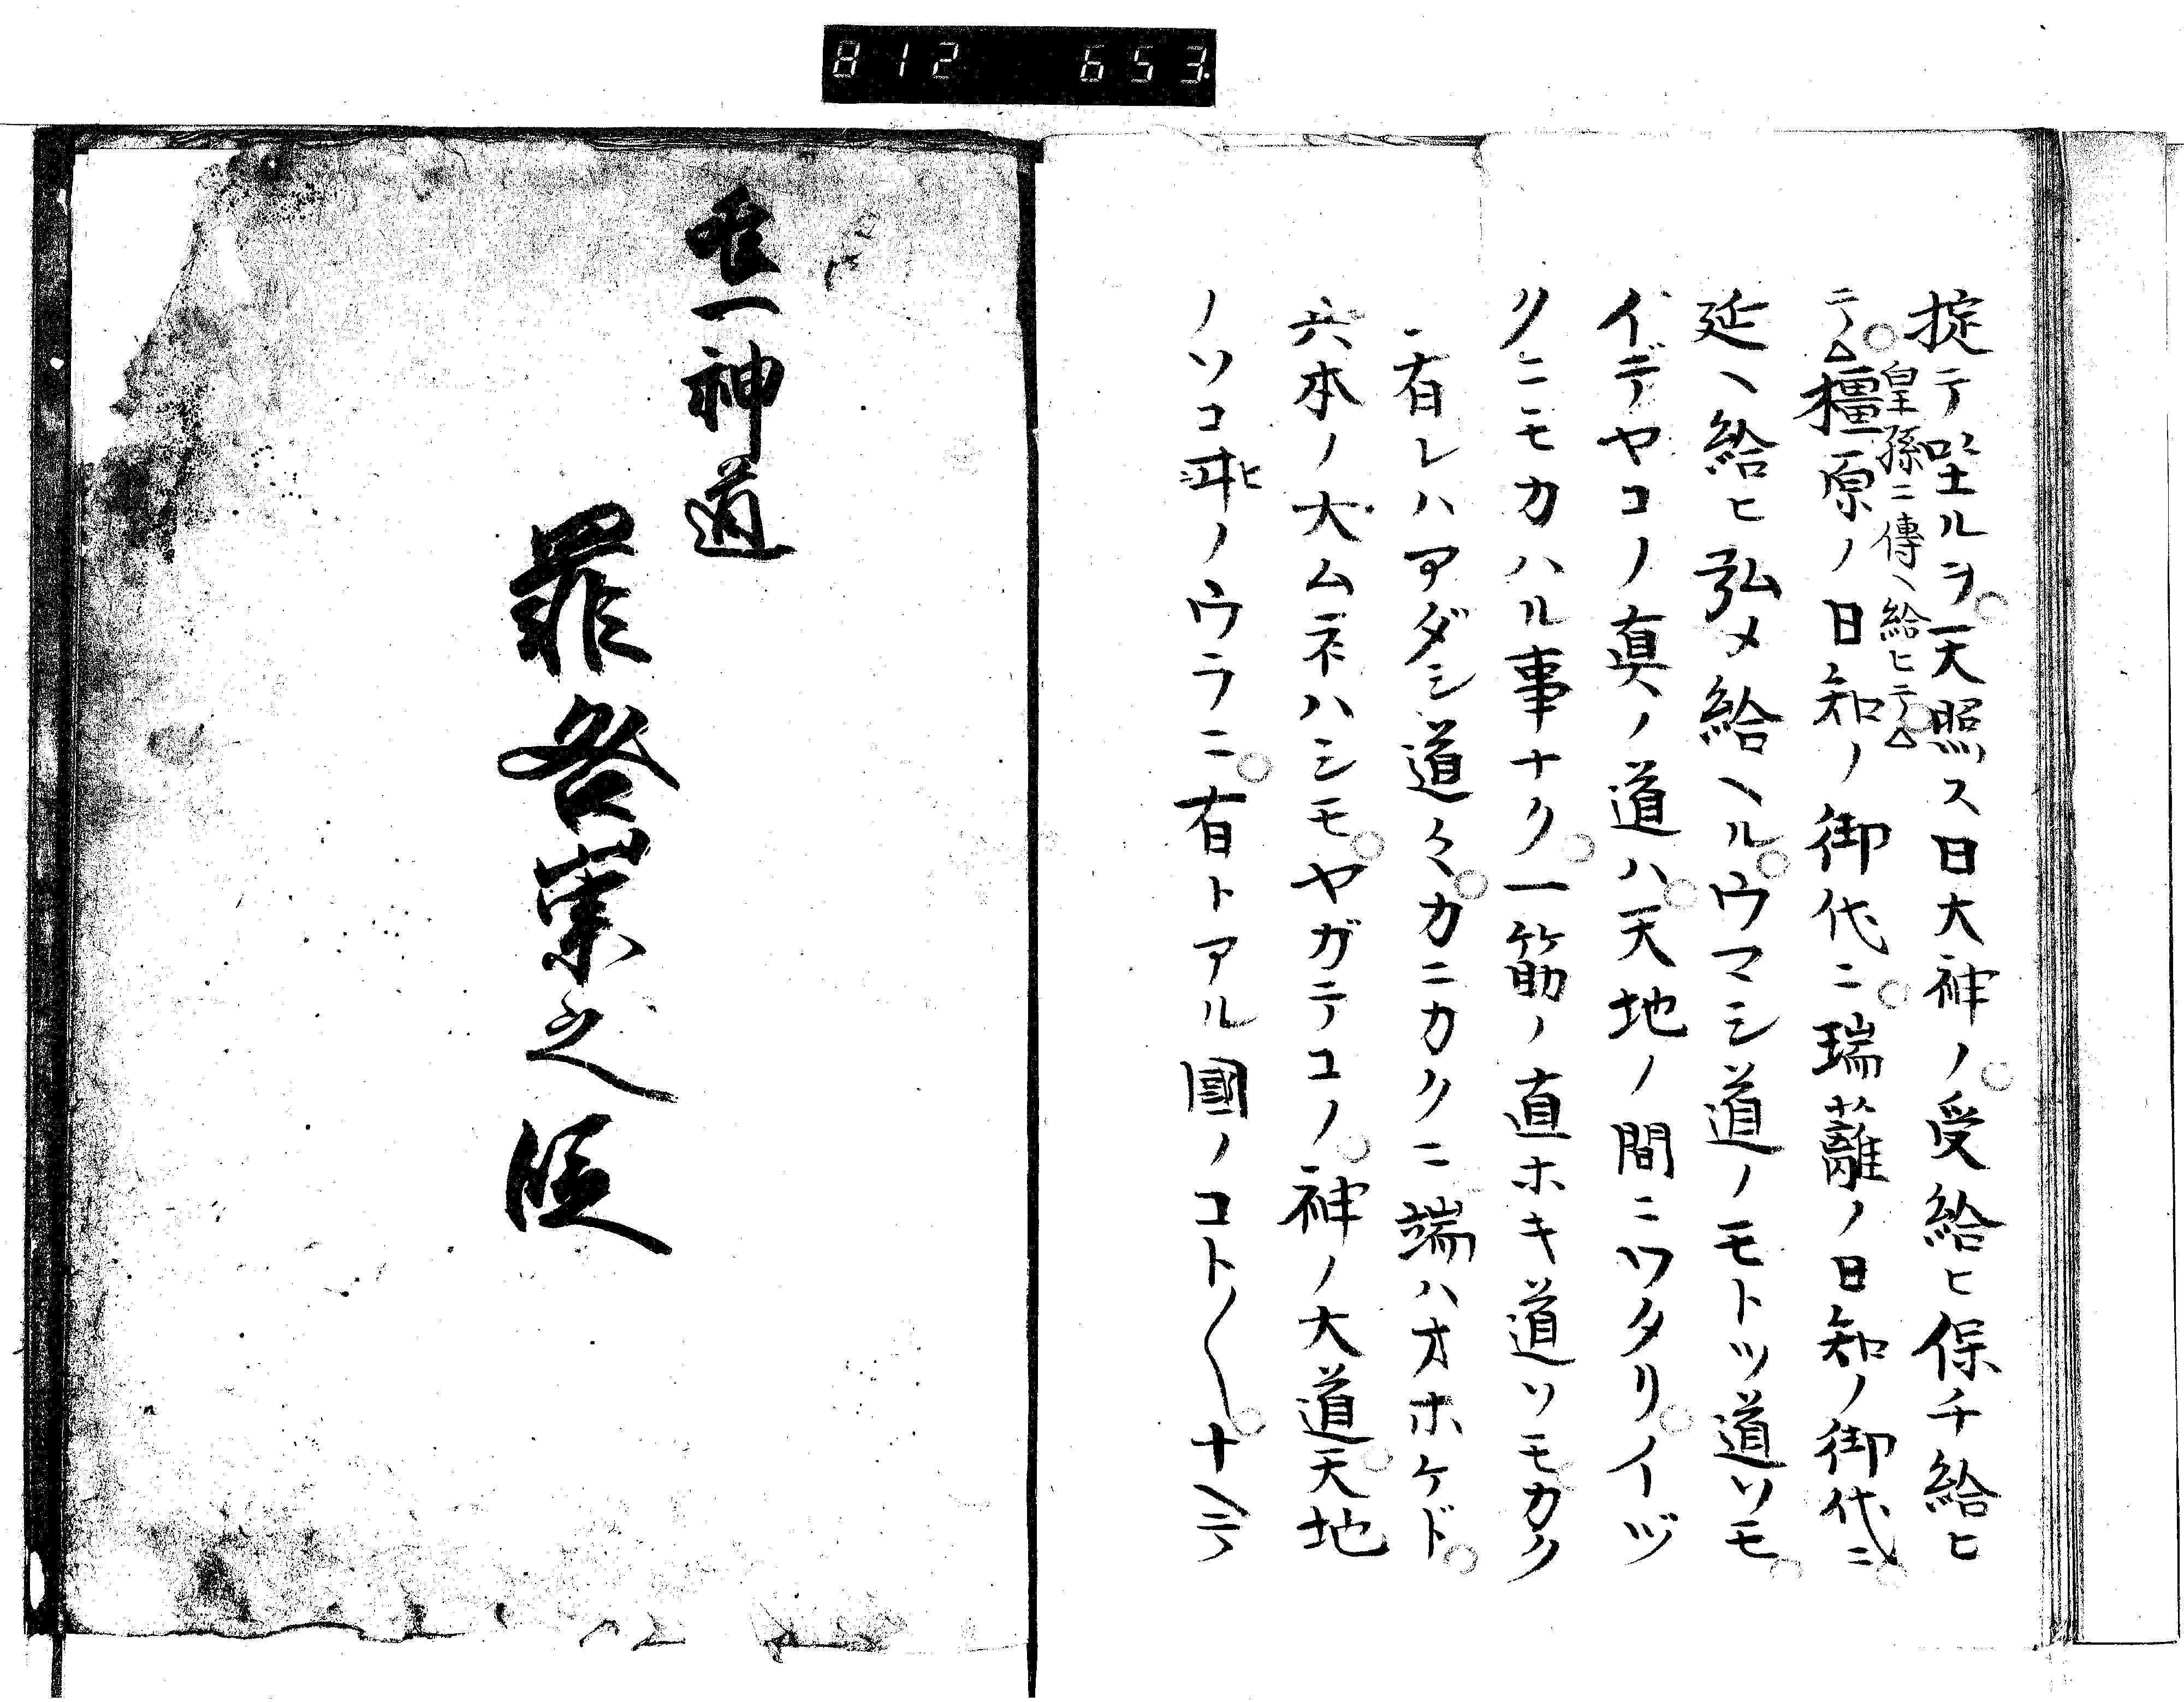 812 653.
掟テ坐ルヲ天照ス日大神ノ受給ヒ保チ給ヒ
皇孫ニ傳ヘ給ヒテ△
テ△橿原ノ日知ノ御代ニ瑞籬ノ日知ノ御代ニ
延ヘ給ヒ弘メ給ヘルウマシ道ノモトツ道ソモ
イデヤコノ真ノ道ハ天地ノ間ニワタリイヅ
クニモカハル事ナク一筋ノ直ホキ道ソモカク
ニ有レハアダシ道々カニカクニ端ハオホケド
六本ノ大ムネハシモヤガテコノ神ノ大道天地
ノソコヒノウラニ有トアル國ノコト〱ナヘテ
唯一神道
罪咎祟之